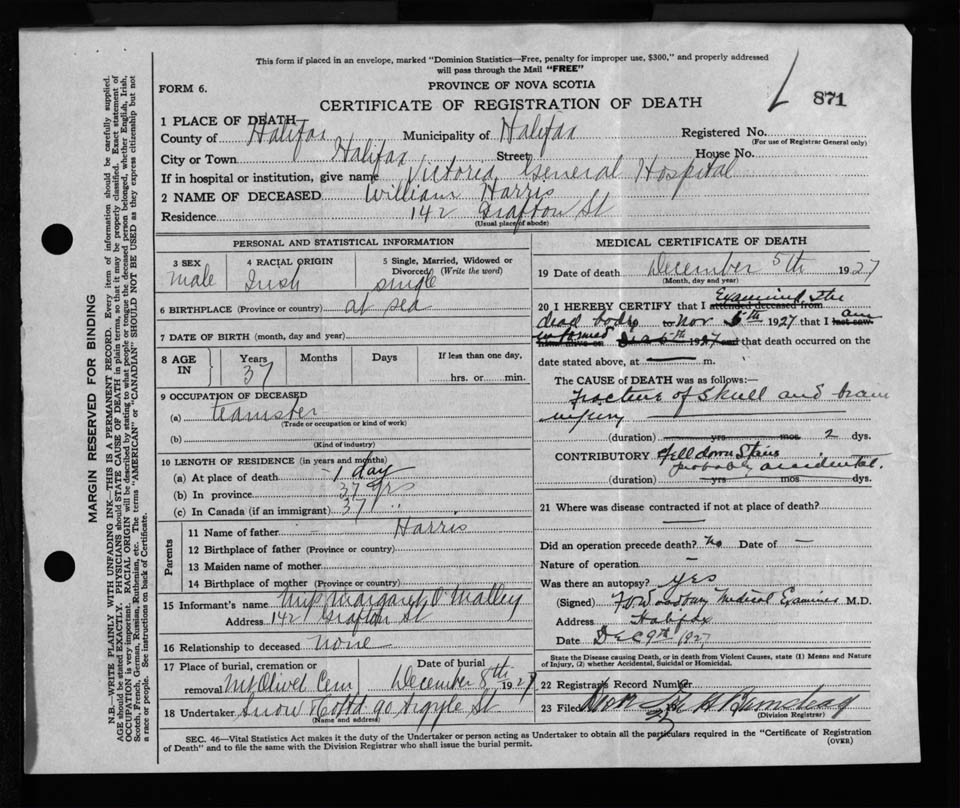 This form if placed in an envelope, marked "Dominion Statistics—Free, penalty for improper use, $300," and properly addressed
will pass through the Mail "FREE"
FORM 6.
PROVINCE OF NOVA SCOTIA
871
CERTIFICATE OF REGISTRATION OF DEATH
1 PLACE OF DEATH
County of Halifax Municipality of Halifax Registered No.
(For use of Registrar General only)
City or Town Halifax Street House No.
If in hospital or institution, give name Victoria General Hospital
2 NAME OF DECEASED William Harris
Residence 142 Grafton St
(Usual place of abode)
PERSONAL AND STATISTICAL INFORMATION
3 SEX 4 RACIAL ORIGIN 5 Single, Married, Widowed or
Divorced (Write the word)
male Irish single
6 BIRTHPLACE (Province or country) at sea
7 DATE OF BIRTH (month, day and year)
8 AGE IN Years Months Days If less than one day,
37 hrs. or min.
9 OCCUPATION OF DECEASED
(a) teamster
(Trade or occupation or kind of work)
(b)
(Kind of industry)
10 LENGTH OF RESIDENCE (in years and months)
(a) At place of death 1 day
(b) In province 37 yrs
(c) In Canada (if an immigrant) 37 "
Parents
11 Name of father Harris
12 Birthplace of father (Province or country)
13 Maiden name of mother
14 Birthplace of mother (Province or country)
15 Informant's name Mrs Margaret O'Malley
Address 142 Grafton St
16 Relationship to deceased none
17 Place of burial, cremation or Date of burial
removal Mt Olivet Cem December 8th 1927
18 Undertaker Snow & Co Ltd 90 Argyle St
(Name and address)
MEDICAL CERTIFICATE OF DEATH
19 Date of death December 5th 1927
(Month, day and year)
20 I HEREBY CERTIFY that I attended deceased from Examined the
dead body to Nov 5th 1927 that I last saw am
informed him alive on Dec 5th 1927 and that death occurred on the
date stated above, at m.
The CAUSE OF DEATH was as follows:—
Fracture of skull and brain
injury
(duration) yrs mos 2 dys.
CONTRIBUTORY Fell down stairs
probably accidental.
(duration) yrs mos. dys.
21 Where was disease contracted if not at place of death?
Did an operation precede death? No Date of —
Nature of operation —
Was there an autopsy? yes
(Signed) Woodbury Medical Examiner M.D.
Address Halifax
Date Dec 9th 1927
State the Disease causing Death, or in death from Violent Causes, state (1) Means and Nature
of Injury, (2) whether Accidental, Suicidal or Homicidal.
22 Registrars Record Number
23 Filed
(Division Registrar)
SEC. 46—Vital Statistics Act makes it the duty of the Undertaker or person acting as Undertaker to obtain all the particulars required in the "Certificate of Registration
of Death" and to file the same with the Division Registrar who shall issue the burial permit.
(OVER)
MARGIN RESERVED FOR BINDING
N.B.—WRITE PLAINLY WITH UNFADING INK—THIS IS A PERMANENT RECORD. Every item of information should be carefully supplied.
AGE should be stated EXACTLY. PHYSICIANS should STATE CAUSE OF DEATH in plain terms, so that it may be properly classified. Exact statement of
OCCUPATION is very important. RACIAL ORIGIN will be described by stating to what people or tongue the deceased person belonged, whether English, Irish,
Scotch, French, German, Russian, Ruthenian, etc. The terms "AMERICAN" or "CANADIAN" SHOULD NOT BE USED as they express citizenship but not
a race or people. See instructions on back of Certificate.